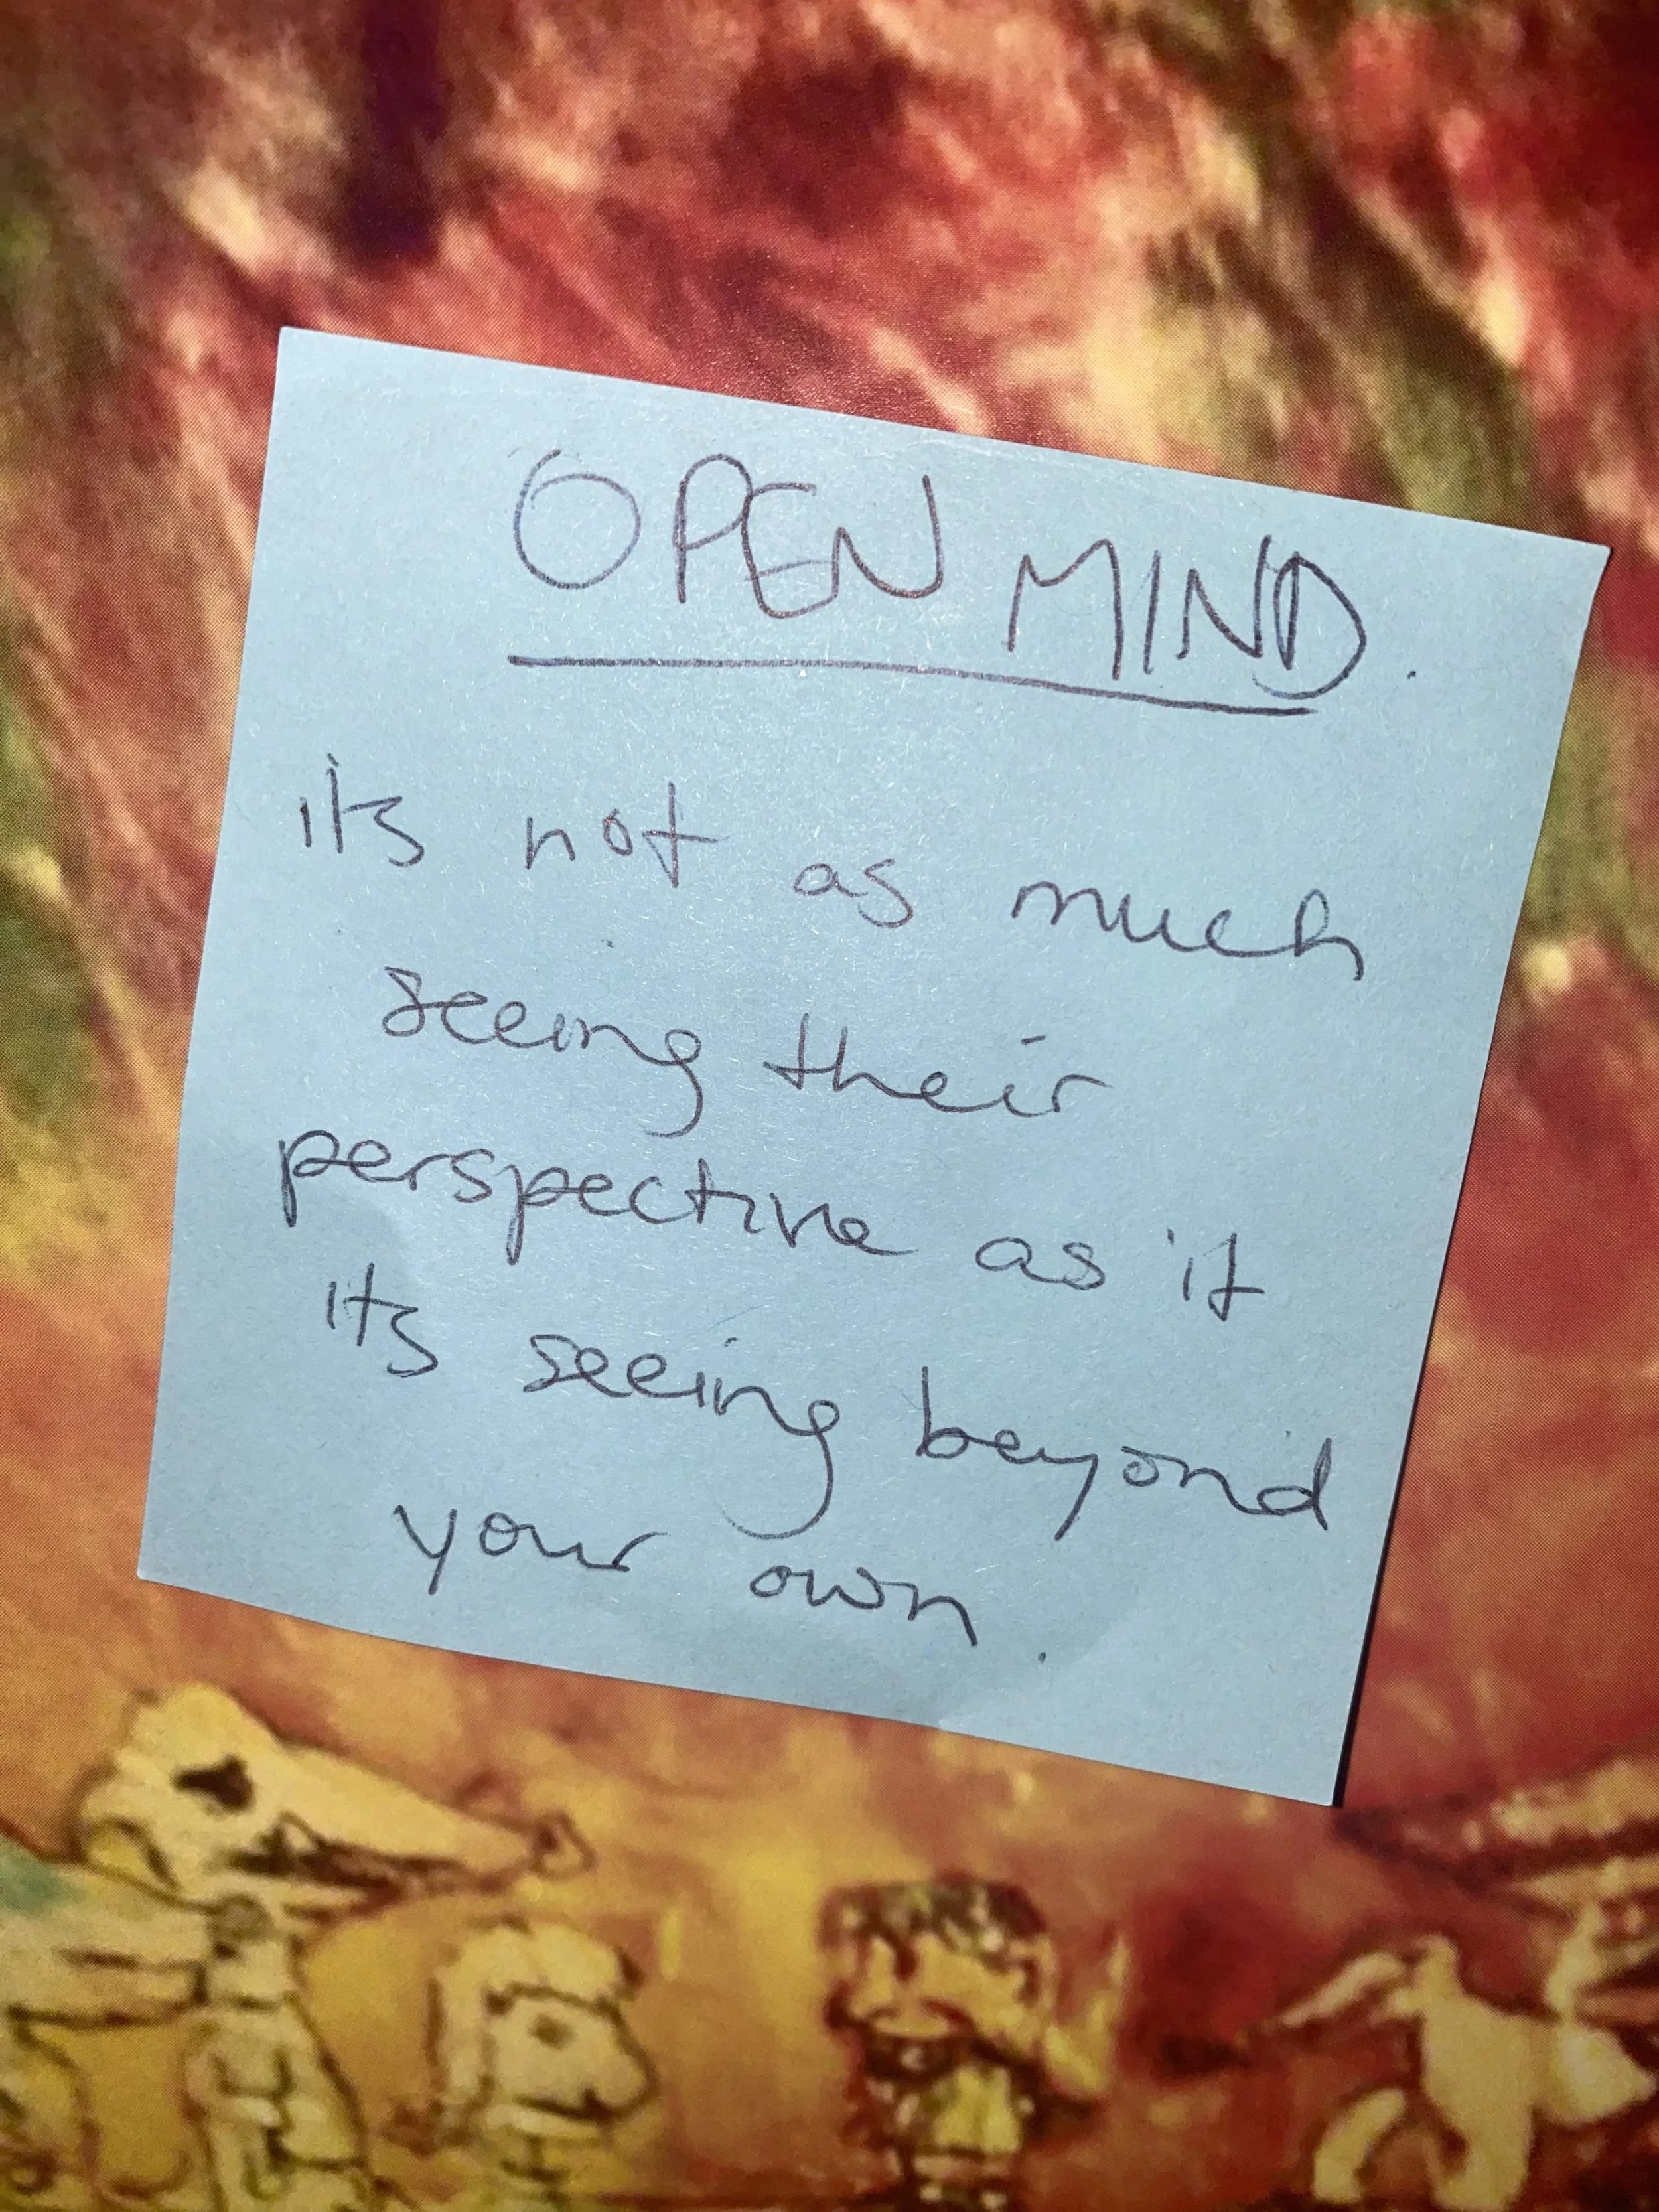 OPEN MIND.
its not as much
seeing their
perspective as it
its seeing beyond
your own.